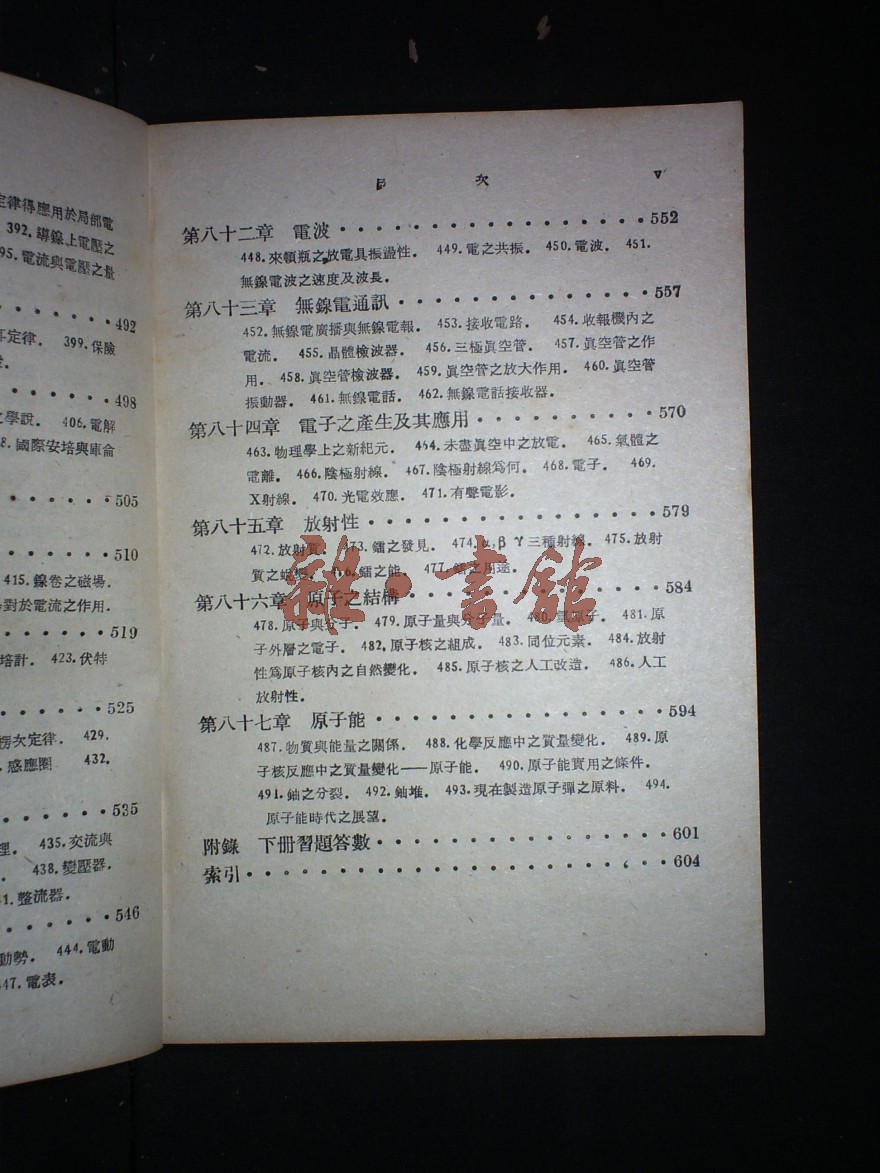 定律得應用於局部電
392. 導線上電壓之
95. 電流與電壓之量
492
定律. 399. 保險
498
之學說. 406. 電解
8. 國際安培與庫侖
505
510
415. 線卷之磁場.
對於電流之作用.
519
培計. 423. 伏特
525
楞次定律. 429.
感應圈 432.
535
理. 435. 交流與
438. 變壓器.
41. 整流器.
546
動勢. 444. 電動
447. 電表.
目次 V
第八十二章 電波 552
448. 來頓瓶之放電具振盪性. 449. 電之共振. 450. 電波. 451.
無線電波之速度及波長.
第八十三章 無線電通訊 557
452. 無線電廣播與無線電報. 453. 接收電路. 454. 收報機內之
電流. 455. 晶體檢波器. 456. 三極眞空管. 457. 眞空管之作
用. 458. 眞空管檢波器. 459. 眞空管之放大作用. 460. 眞空管
振動器. 461. 無線電話. 462. 無線電話接收器.
第八十四章 電子之產生及其應用 570
463. 物理學上之新紀元. 464. 未盡眞空中之放電. 465. 氣體之
電離. 466. 陰極射線. 467. 陰極射線爲何. 468. 電子. 469.
X射線. 470. 光電效應. 471. 有聲電影.
第八十五章 放射性 579
472. 放射質. 473. 鐳之發見. 474. α, β γ 三種射線. 475. 放射
質之蛻變. 476. 鐳之能. 477. 鐳之用途.
雜·書館
第八十六章 原子之結構 584
478. 原子與分子. 479. 原子量與分子量. 480. 量原子. 481. 原
子外層之電子. 482. 原子核之組成. 483. 同位元素. 484. 放射
性爲原子核內之自然變化. 485. 原子核之人工改造. 486. 人工
放射性.
第八十七章 原子能 594
487. 物質與能量之關係. 488. 化學反應中之質量變化. 489. 原
子核反應中之質量變化——原子能. 490. 原子能實用之條件.
491. 鈾之分裂. 492. 鈾堆. 493. 現在製造原子彈之原料. 494.
原子能時代之展望.
附錄 下册習題答數 601
索引 604